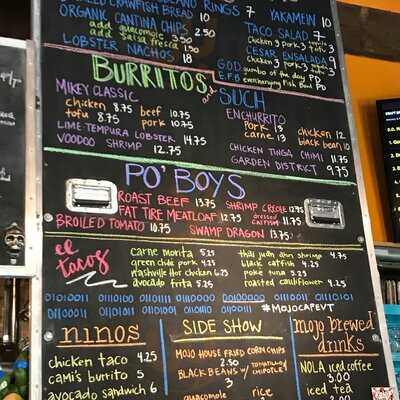 CRAWFISH BREAD 10
RINGS 7
YAKAMEIN 10
ORGANIC CANTINA CHIPS 2.50
add guacamole 3.50
add salsa fresca 1.50
LOBSTER NACHOS 18
TACO SALAD 7
chicken 3 pork 3
CESAR ENSALADA 9
chicken 3 pork 3
G.O.D. gumbo of the day PD
E.F.B. everchanging fish bowl PD
BURRITOS and SUCH
MIKEY CLASSIC
chicken 8.75 beef 10.75
tofu 8.75 pork 10.75
LIME TEMPURA LOBSTER 14.75
VOODOO SHRIMP 12.75
ENCHURRITO
pork 13 chicken 12
carne 13 black bean 10
CHICKEN TINGA CHIMI 11.75
GARDEN DISTRICT 9.75
PO'BOYS
ROAST BEEF 13.75 SHRIMP CREOLE 13.75
FAT TIRE MEATLOAF 12.75 dressed catfish 11.75
BROILED TOMATO 10.75 SWAMP DRAGON 13.75
el tacos
carne morita 5.25
green chile pork 4.25
nashville hot chicken 6.25
avocado frita 5.25
thai juan ahn shrimp 4.75
black catfish 4.25
poke tuna 5.25
roasted cauliflower 4.25
#MOJOCAPEVT
ninos
chicken taco 4.25
cami's burrito 5
avocado sandwich 6
SIDE SHOW
MOJO HOUSE FRIED CORN CHIPS
2.50
BLACK BEANS w/ TOMATILLO CHIPOTLE
3
guacamole rice
mojo brewed drinks
NOLA iced coffee
3.00
iced tea